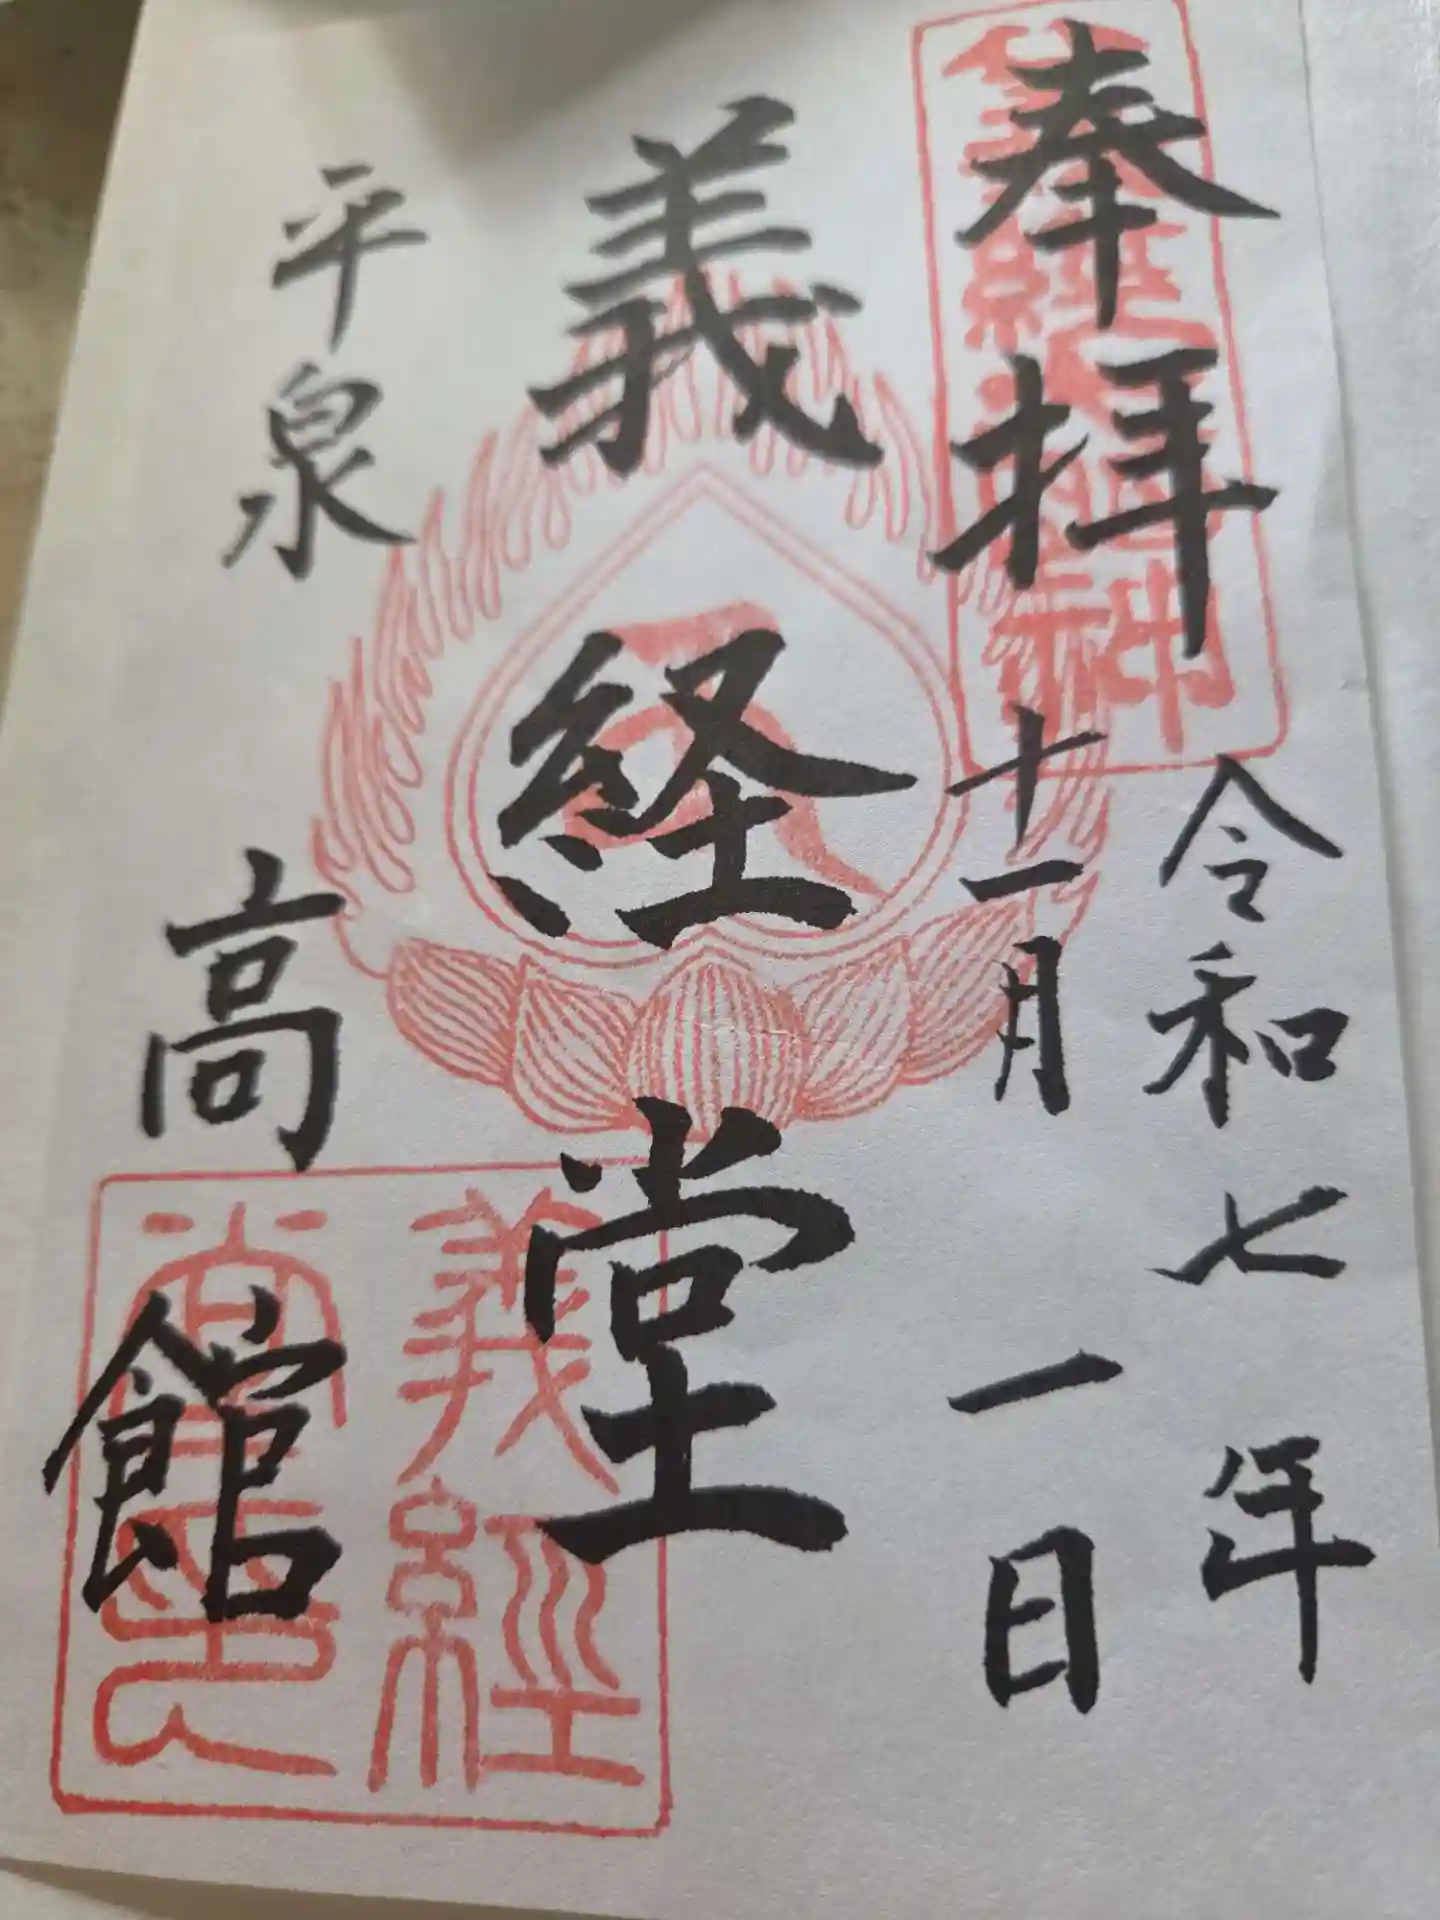 奉拝
令和七年
十一月一日
義経堂
平泉
高館
義經
堂印